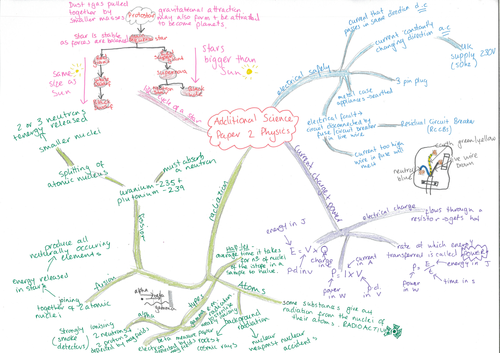 Dust & gas pulled
together by
smaller masses.
gravitational attraction
may also form & be attracted
to become planets.
Protostar
Star is stable
as forces are balanced
Stars
bigger than
Sun
same
size as
Sun
Supernova
Life cycle of a star
Additional Science
Paper 2 Physics
electrical supply
current that
passes in same direction d.c
current constantly
changing direction a.c
UK
supply 230V
(50Hz)
3 pin plug
metal case
appliances - earthed
electrical fault =
circuit disconnected by
fuse/circuit breaker
in live wire
Residual Circuit Breaker
(RCCBs)
Current too high
wire in fuse will
melt
earth green/yellow
live wire
brown
neutral
blue
current, charge & power
electrical charge
flows through =
resistor - gets hot
rate at which energy
transferred is called power
energy in J
E = V x Q
Pd in V
charge
in C
current
in A
P = I x V
power
in W
p.d.
in V
P = E/t
energy in J
power
in W
time in s
radiation
fission
splitting of
atomic nucleus
2 or 3 neutrons
+ energy released
smaller nuclei
must absorb
a neutron
uranium - 235 +
plutonium - 239
fusion
produce all
naturally occuring
elements
energy released
in stars
joining
together of 2 atomic
types
alpha
beta
gamma
Strongly ionising
(smoke detector)
2 protons +
2 neutrons
Half life -
average time it takes
for no. of nuclei
of the
in a
sample to halve.
Atoms
some substances give out
radiation from the nucleus of
their atoms. RADIOACTIVE
background
radiation
rocks +
cosmic rays
nuclear
weapons +
nuclear
accidents